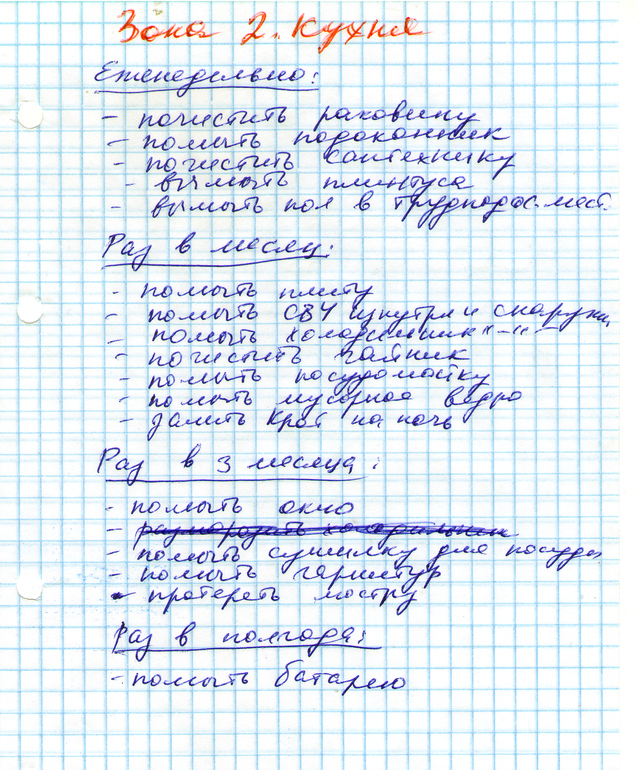 Зона 2. Кухня
Еженедельно:
- почистить раковину
- помыть подоконник
- почистить сантехнику
- вымыть плинтуса
- вымыть пол в труднодос. мест.
Раз в месяц:
- помыть плиту
- помыть СВЧ изнутри и снаружи
- помыть холодильник -"-
- почистить чайник
- помыть посудомойку
- помыть мусорное ведро
- залить Крот на ночь
Раз в 3 месяца:
- помыть окно
- разморозить холодильник
- помыть сушилку для посуды
- помыть гарнитур
- протереть люстру
Раз в полгода:
- помыть батарею